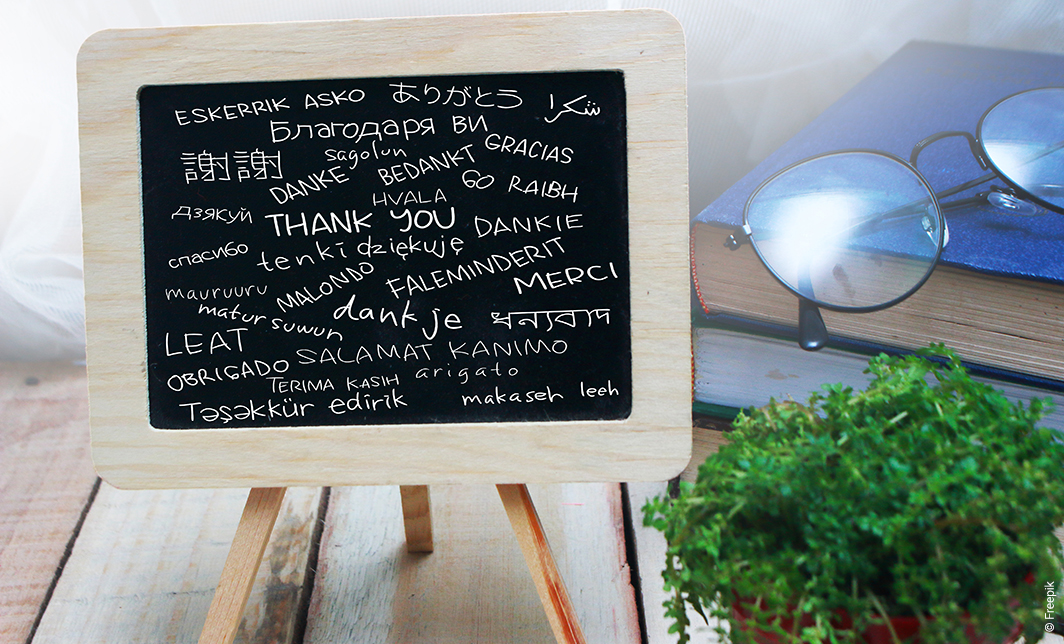 ESKERRIK ASKO
ありがとう
شكرا
Благодаря ви
謝謝
sagolun
DANKE
BEDANKT
GRACIAS
HVALA
GO RAIBH
Дзякуй
THANK YOU
DANKIE
спасибо
tenki
dziękuję
mauruuru
MALONDO
FALEMINDERIT
MERCI
matur suwun
dank je
धन्यवाद
LEAT
SALAMAT
KANIMO
OBRIGADO
TERIMA KASIH
arigato
Təşəkkür edirik
makaseh
leeh
© Freepik